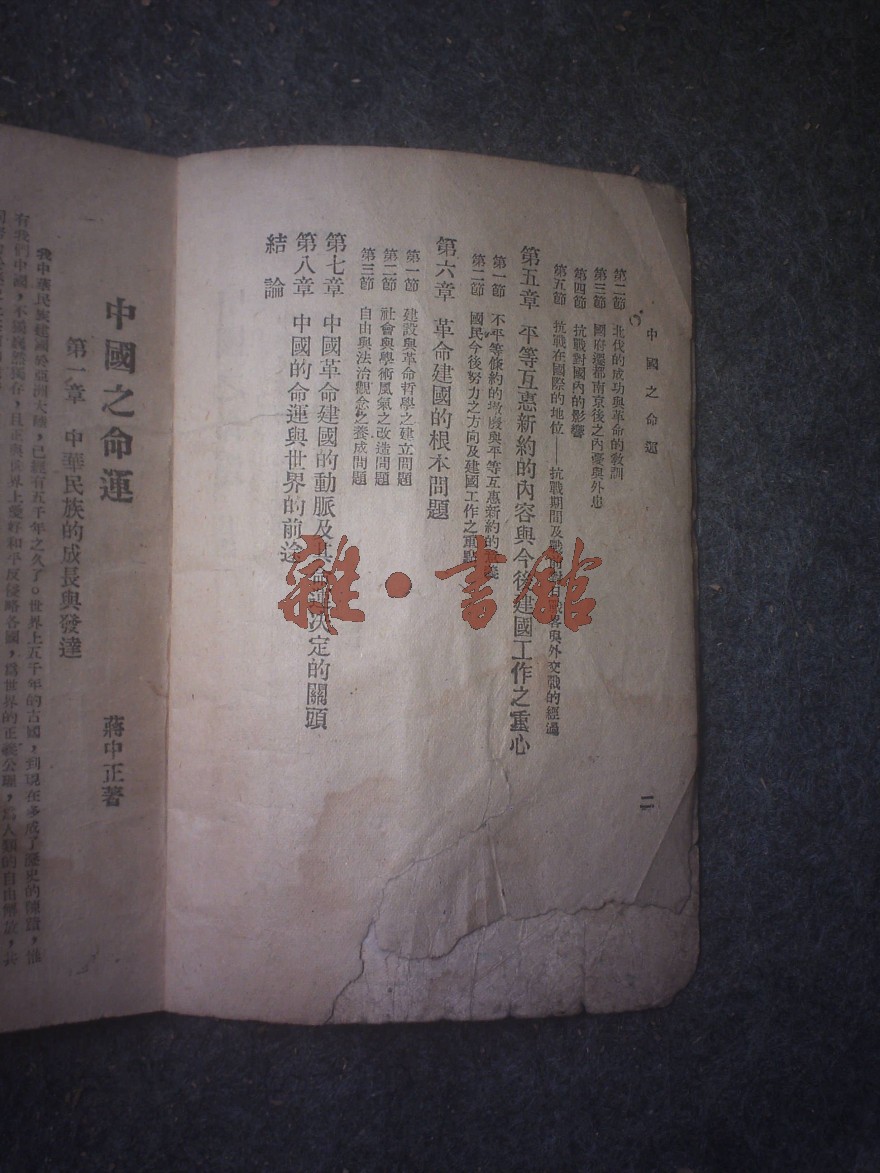 中國之命運
二
第二節　北伐的成功與革命的教訓
第三節　國府遷都南京後之內憂與外患
第四節　抗戰對國內的影響
第五節　抗戰在國際的地位——抗戰期間及戰 與外交戰的經過
第五章　平等互惠新約的內容與今後建國工作之重心
第一節　不平等條約的撤廢與平等互惠新約的
第二節　國民今後努力之方向及建國工作之重點
第六章　革命建國的根本問題
第一節　建設與革命哲學之建立問題
第二節　社會與學術風氣之改造問題
第三節　自由與法治觀念之養成問題
第七章　中國革命建國的動脈及其命運決定的關頭
第八章　中國的命運與世界的前途
結論
雜·書館
中國之命運
蔣中正著
第一章　中華民族的成長與發達
我中華民族建國於亞洲大陸，已經有五千年之久了。世界上五千年的古國，到現在多成了歷史的陳蹟，惟
有我們中國，不獨巍然獨存，且正與世界上愛好和平反侵略各國，為世界的正義公理，為人類的自由解放，共